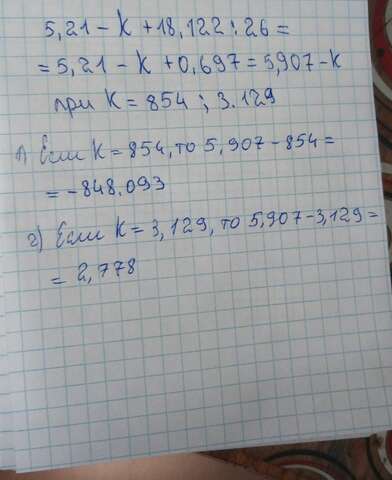 5,21 - K + 18,122 : 26 =
= 5,21 - K + 0,697 = 5,907 - K
при K = 854 ; 3.129
1) Если K = 854, то 5,907 - 854 =
= -848.093
2) Если K = 3,129, то 5,907 - 3,129 =
= 2,778